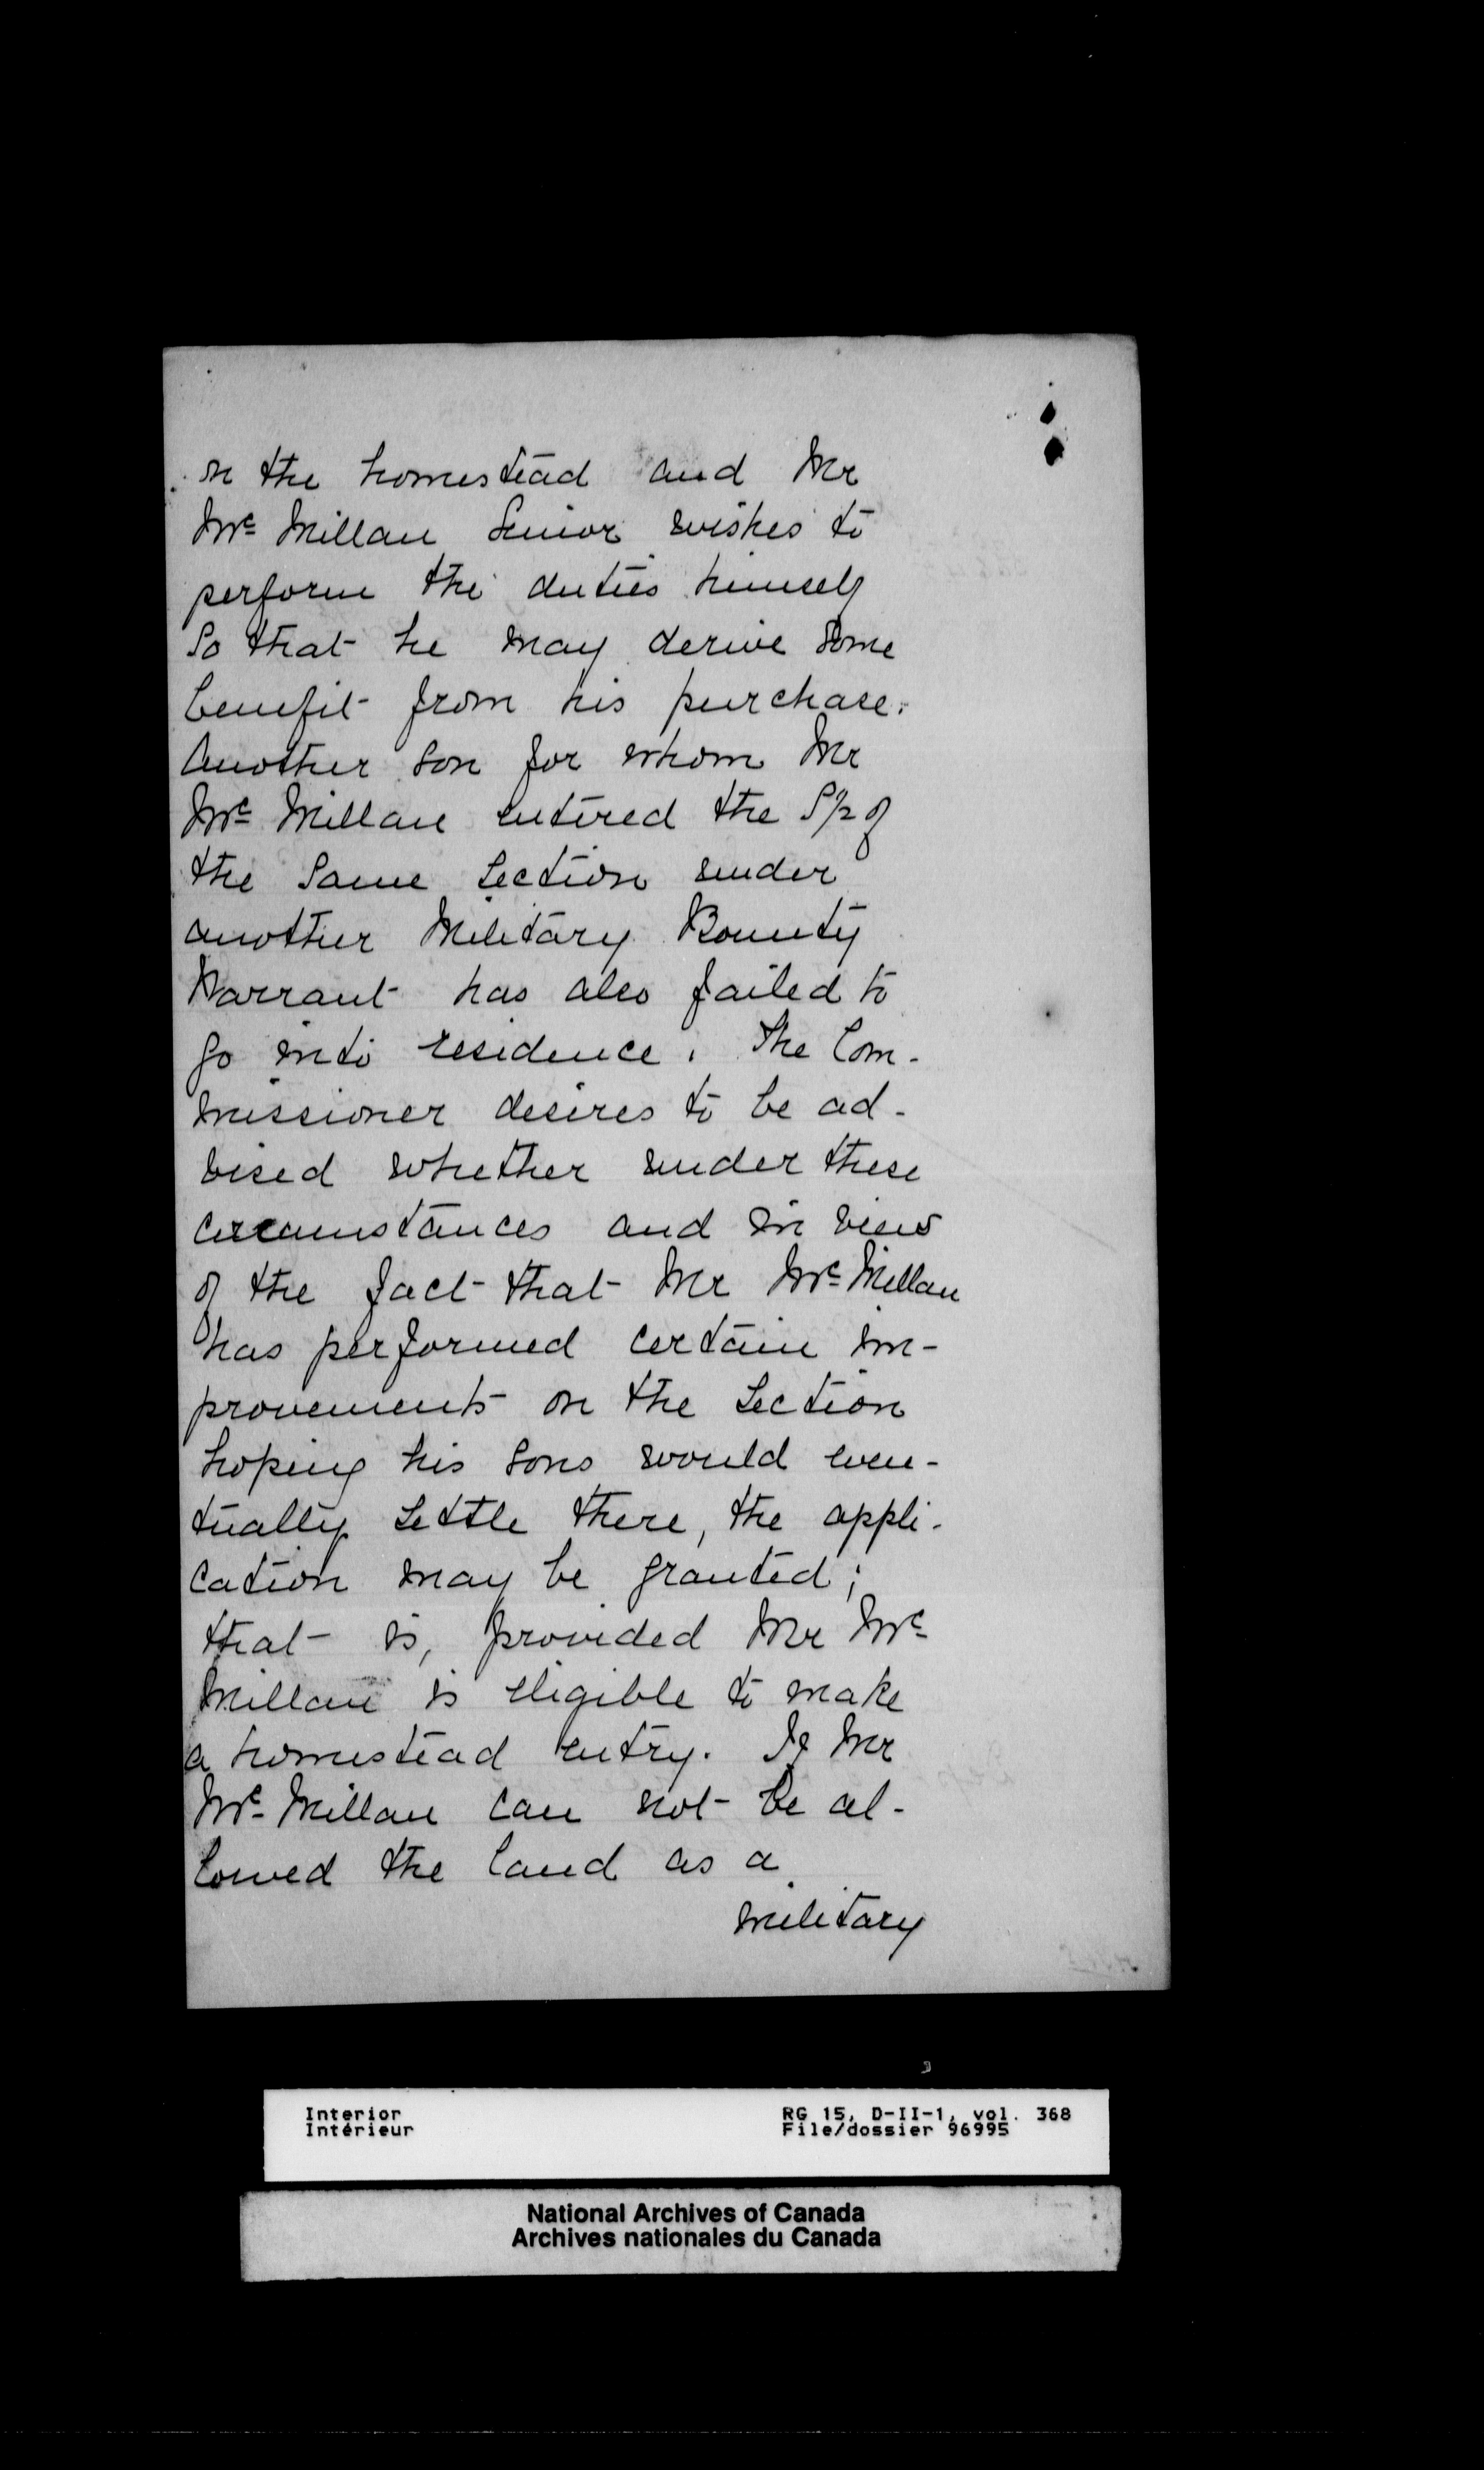 on the homestead and Mr
Mc Millan Senior wishes to
perform the duties himself
so that he may derive some
benefit from his purchase.
Another son for whom Mr
Mc Millan entered the S½ of
the same section under
another Military Bounty
Warrant has also failed to
go into residence. The Com-
missioner desires to be ad-
vised whether under these
circumstances and in view
of the fact that Mr Mc Millan
has performed certain im-
provements on the section
hoping his sons would even-
tually settle there, the appli-
cation may be granted;
that is, provided Mr Mc
Millan is eligible to make
a homestead entry. If Mr
Mc Millan can not be al-
lowed the land as a
military
Interior RG 15, D-II-1, vol. 368
Intérieur File/dossier 96995
National Archives of Canada
Archives nationales du Canada